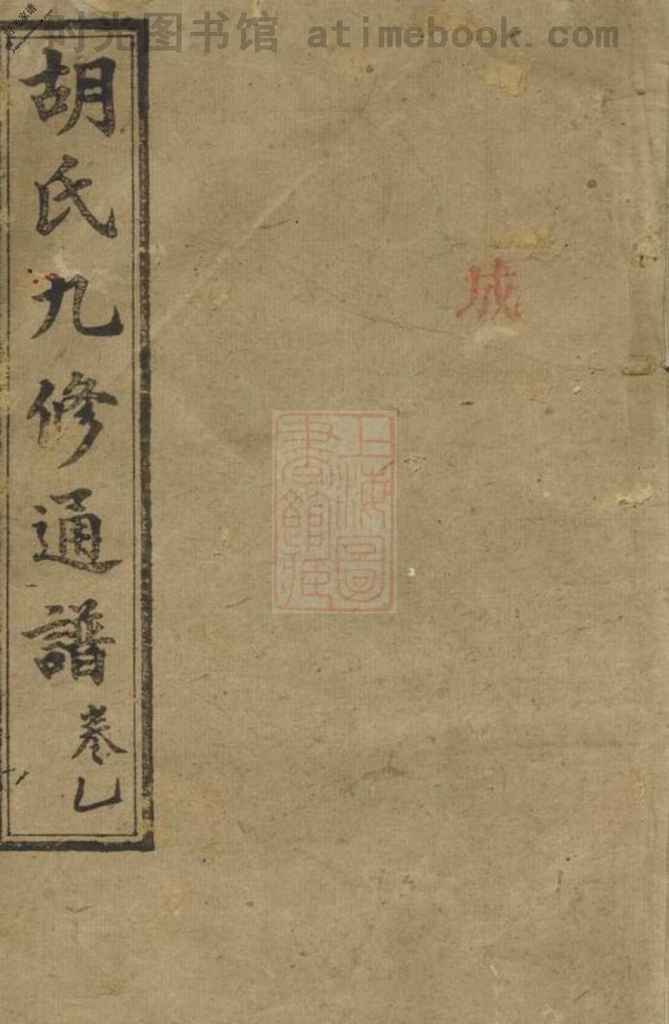 时光图书馆 atimebook.com
胡氏九修通譜
卷乚
城
上海圖書館藏